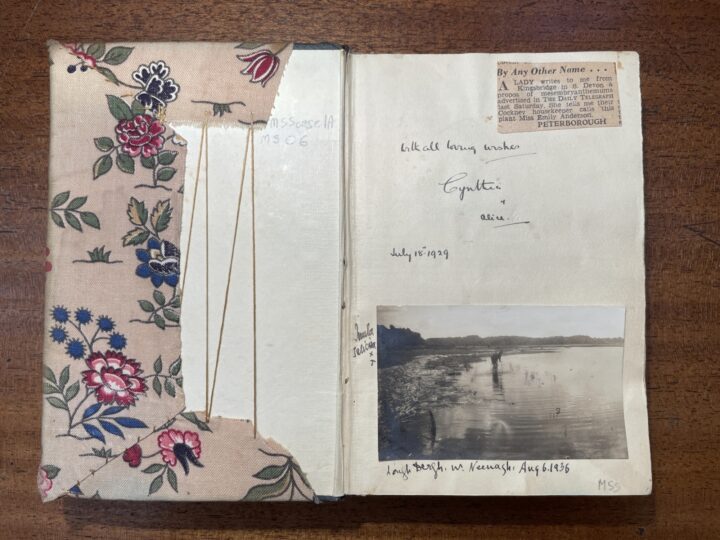 MSS
M3 06
By Any Other Name . . .
A LADY writes to me from
Kingsbridge in S. Devon à
propos of mesembryanthemums
advertised in THE DAILY TELEGRAPH
last Saturday. She tells me their
Cockney housekeeper calls this
plant Miss Emily Anderson.
PETERBOROUGH
With all loving wishes
Cynthia
&
Alice.
July 18th 1929
Lough Dergh. nr. Neenagh. Aug 6. 1936
MSS